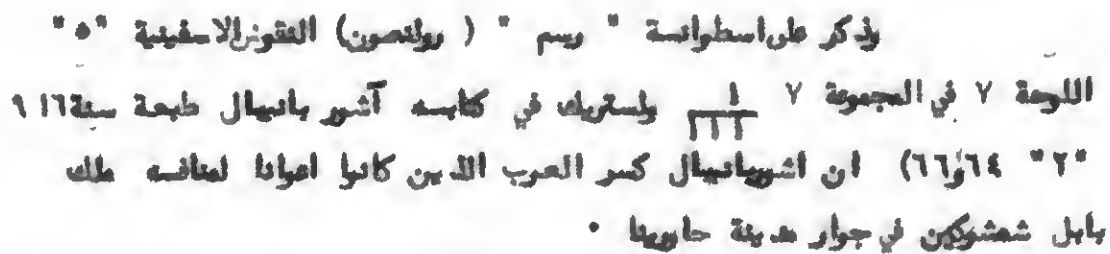 يذكر على اسطوانسة " رسم " ( رولنصون) النقوش الاسفينية "٥"
اللوحة ٧ في المجموعة ٧ ١/١١١ ولستريك في كتابسه آشور بانيبال طبعة سنة ١٩١٦
"٢" ٦٤ و٦٦) ان اشوربانيبال كسر العرب الذين كانوا اعوانا لمنافسه ملك
بابل شمشوكين في جوار مدينة حابورينا .